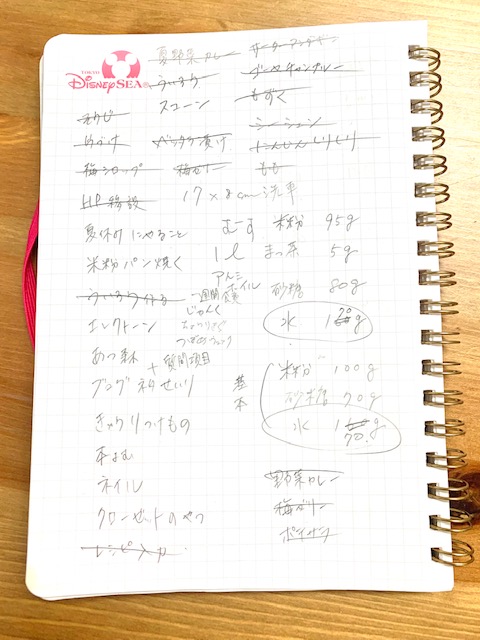 TOKYO
DisneySEA
夏野菜カレー
サーターアンダギー
ういろう
ゴーヤチャンプルー
スコーン
もずく
シーシュン
にんじんしりしり
梅シロップ
梅ゼリー
もも
HP移設
17×8cm洗車
夏休みにやること
むーす
米粉 95g
米粉パン焼く
1l
まっ茶 5g
アルミホイル
砂糖 80g
ういろう作る
一週間
エレクトーン
じゃんく
水
あつ森
+質問項目
ブログネタせいり
基本
米粉 100g
砂糖 70g
水
きゅうりつけもの
本よむ
ネイル
クローゼットのやつ
レシピ入力
野菜カレー
梅ゼリー
ポイサラ